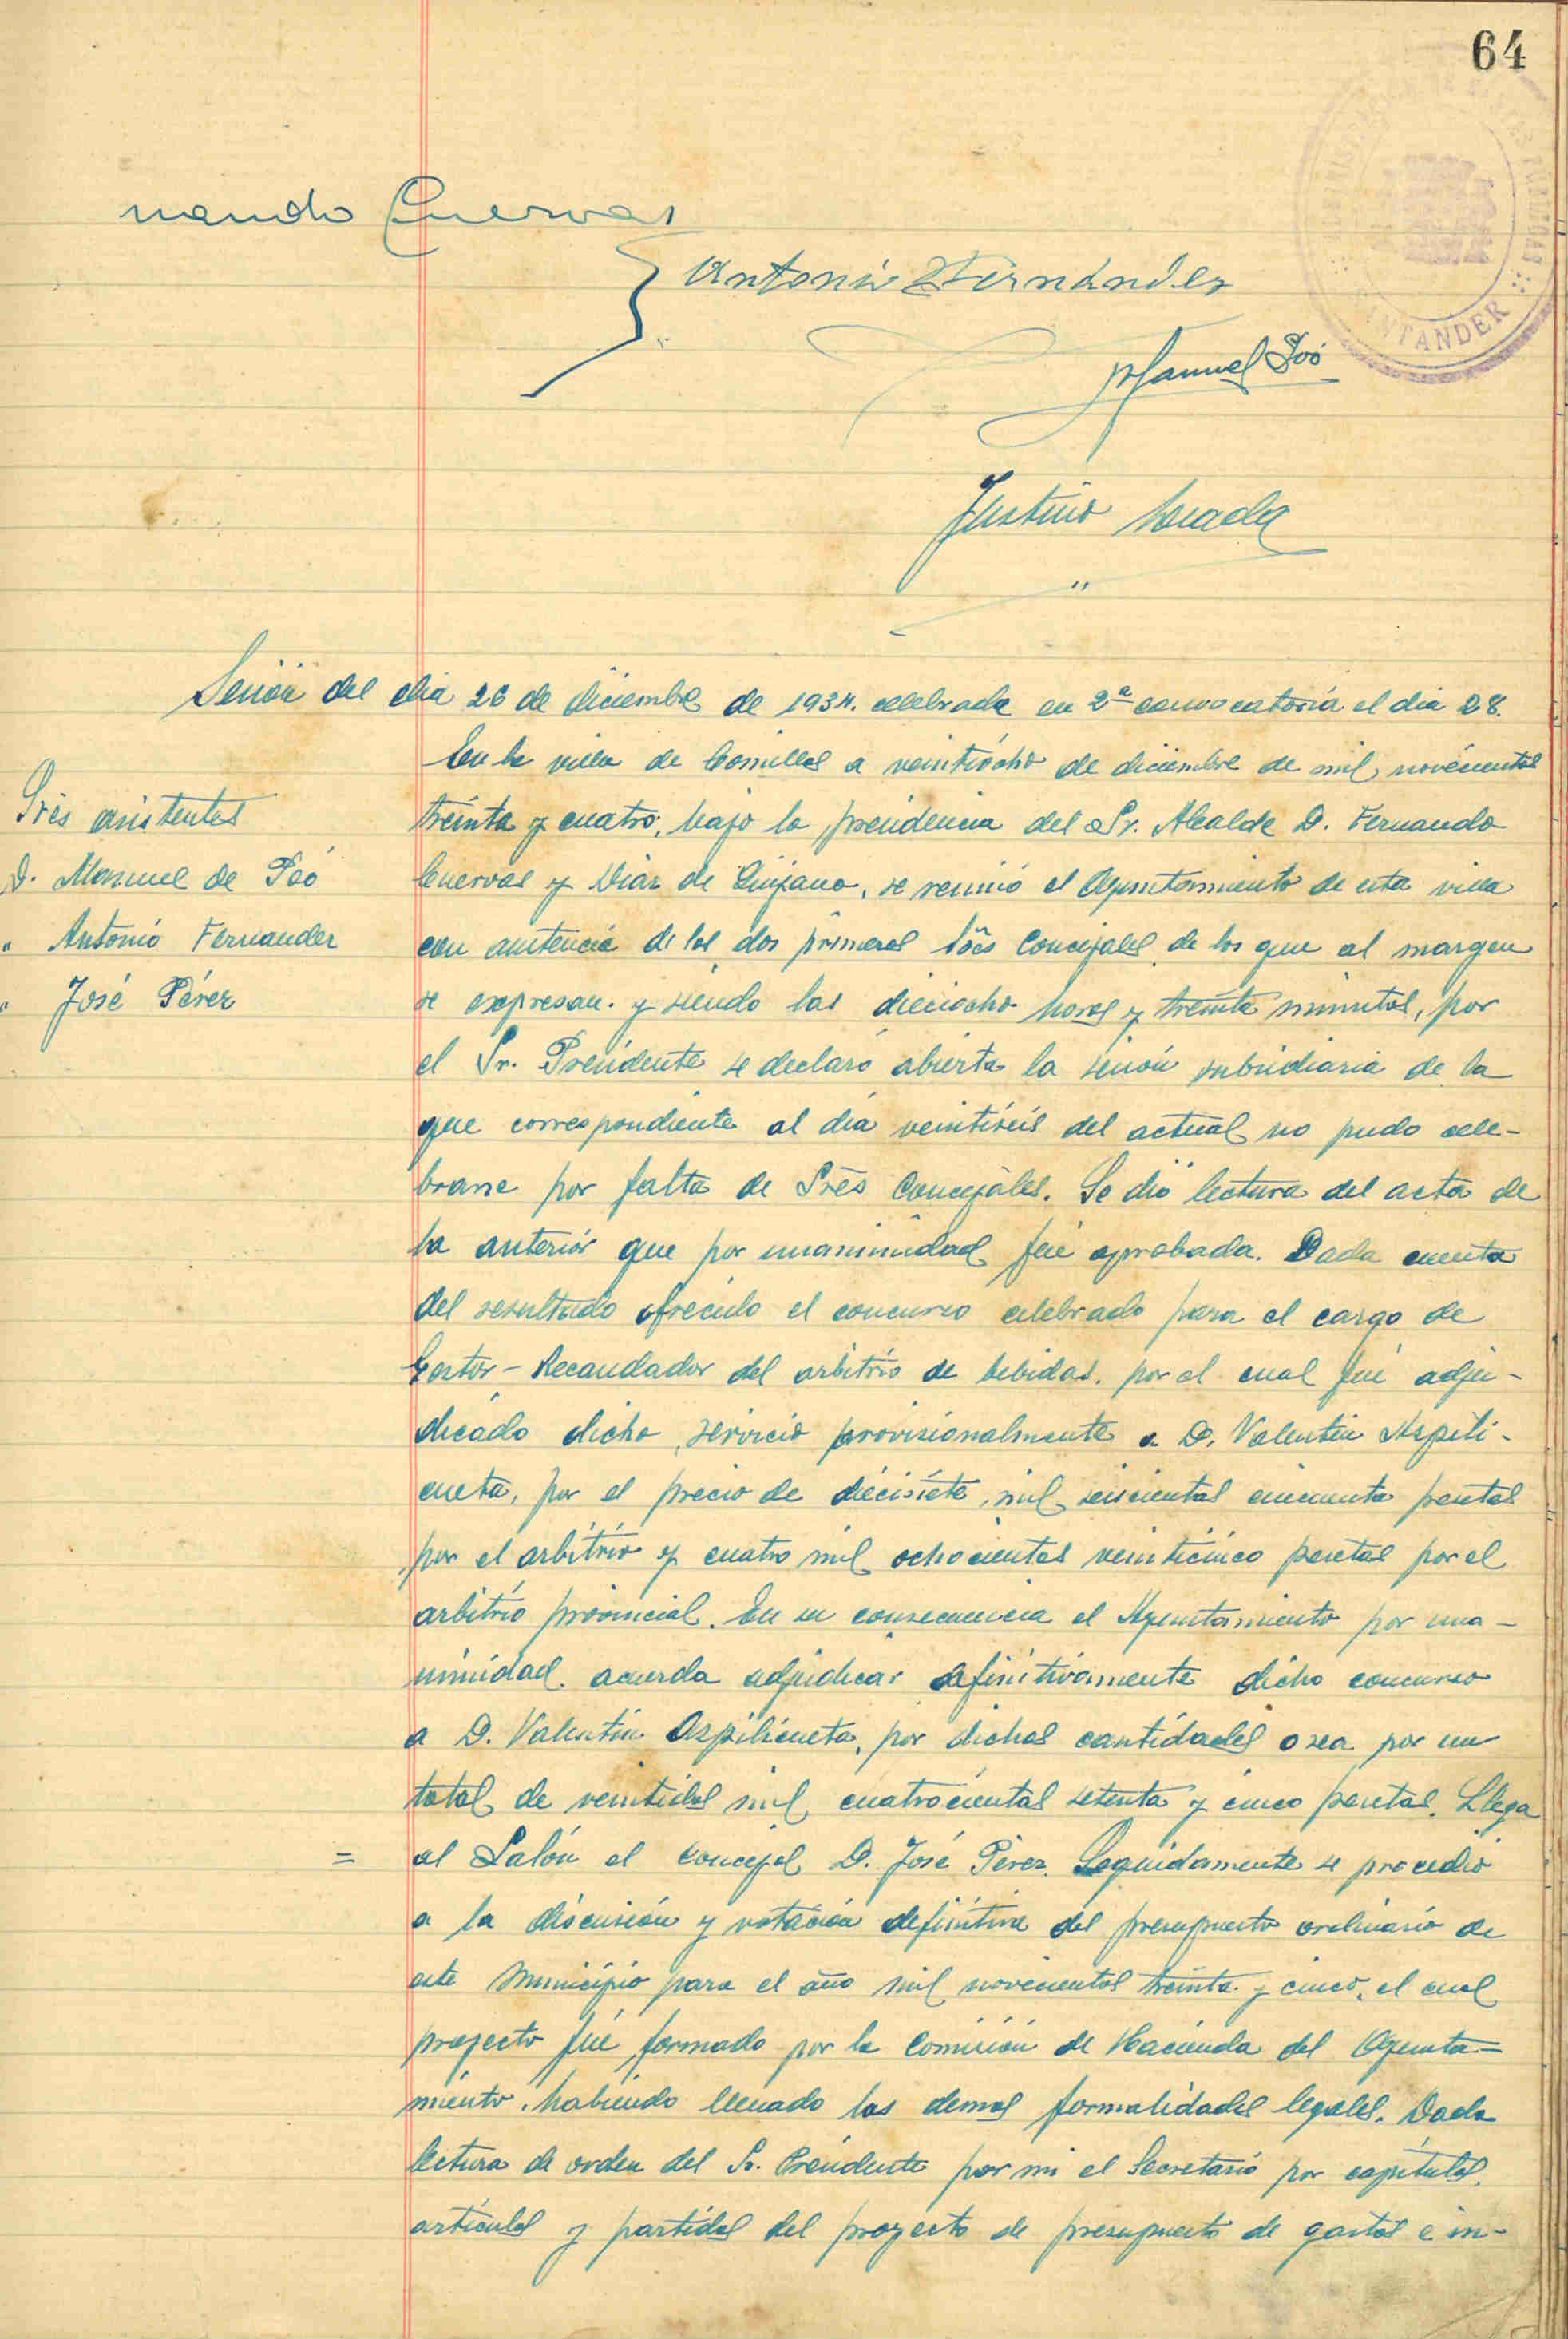 64
nando Cuervas
Antonio Fernández
Manuel Poó
Justino
SANTANDER
Sesión del dia 26 de diciembre de 1934. celebrada en 2ª convocatoria el dia 28.
En la villa de Comillas a veintiocho de diciembre de mil novecientos
Srês asistentes
treinta y cuatro, bajo la presidencia del Sr. Alcalde D. Fernando
D. Manuel de Poó
Cuervas y Diaz de Quijano, se reunió el Ayuntamiento de esta villa
" Antonio Fernandez
con asistencia de los dos primeros Srês Concejales de los que al margen
" José Pérez
se expresan. y siendo las dieciocho horas y treinta minutos, por
el Sr. Presidente se declaró abierta la sesión subsidiaria de la
que correspondiente al día veintiséis del actual no pudo cele-
brarse por falta de Srês Concejales. Se dió lectura del acta de
la anterior que por unanimidad fué aprobada. Dada cuenta
del resultado ofrecido el concurso celebrado para el cargo de
Gestor-Recaudador del arbitrio de bebidas. por el cual fué adju-
dicado dicho servicio provisionalmente a D. Valentin Azpili-
cueta, por el precio de diecisiete mil seiscientas cincuenta pesetas
por el arbitrio y cuatro mil ochocientas veinticinco pesetas por el
arbitrio provincial. En su consecuencia el Ayuntamiento por una-
nimidad. acuerda adjudicar definitivamente dicho concurso
a D. Valentin Azpilicueta, por dichas cantidades o sea por un
total de veintidos mil cuatrocientas setenta y cinco pesetas. Llega
= al Salón el concejal D. José Pérez. Seguidamente se procedió
a la discusión y votación definitiva del presupuesto ordinario de
este Municipio para el año mil novecientos treinta y cinco, el cual
proyecto fué formado por la Comisión de Hacienda del Ayunta=
miento. habiendo llenado las demas formalidades legales. Dada
lectura de orden del Sr. Presidente por mi el Secretario por capitulos,
artículos y partidas del proyecto de presupuesto de gastos e in-